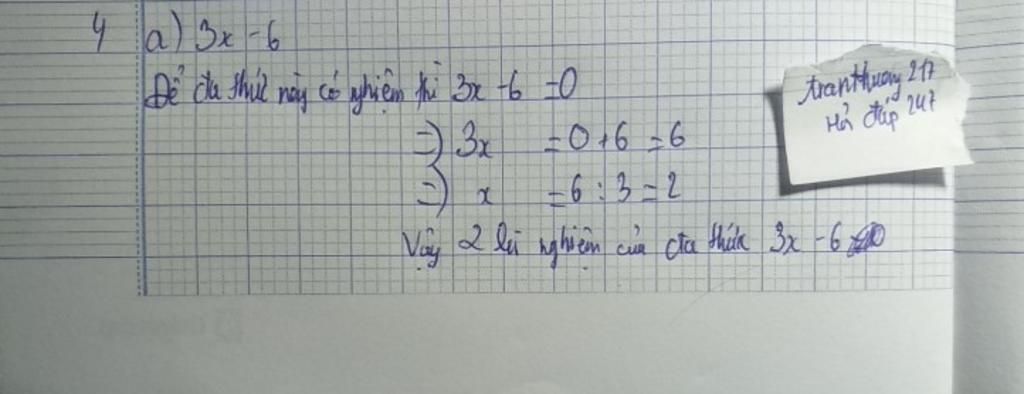 4 a) 3x - 6
Để đa thức này có nghiệm thì 3x - 6 = 0
=) 3x = 0 + 6 = 6
=) x = 6 : 3 = 2
Vậy 2 là nghiệm của đa thức 3x - 6
tranthuong 217
Hỏi đáp 247